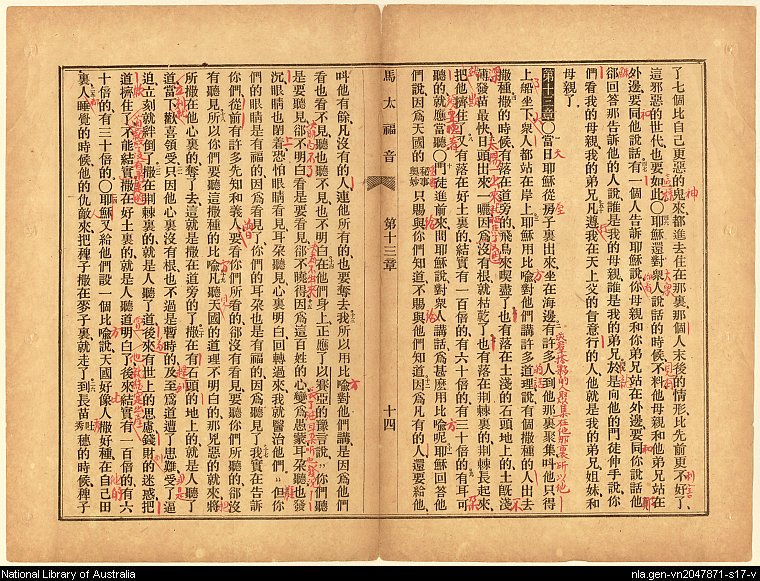 了七個比自己更惡的鬼來都進去住在那裏那個人末後的情形比先前更不好了
這邪惡的世代也要如此○耶穌還對衆人說話的時候不料他母親和他弟兄站在
外邊要同他說話有一個人告訴耶穌說你母親和你弟兄站在外邊要同你說話他
卻回答那告訴他的人說誰是我的母親誰是我的弟兄於是向他的門徒伸手說你
們看我的母親我的弟兄凡遵我在天上父的旨意行的人他就是我的弟兄姐妹和
母親了
第十三章○當日耶穌從房子裏出來坐在海邊有許多人到他那裏聚集叫他只得
上船坐下衆人都站在岸上耶穌用比喻對他們講許多道理說有個撒種的人出去
撒種撒的時候有落在道旁的飛鳥來喫盡了也有落在土淺的石頭地上的土旣淺
薄發苗最快日頭出來一曬因爲沒有根就枯乾了也有落在荆棘裏的荆棘長起來
把他擠住了又有落在好土裏的結實有一百倍的有六十倍的有三十倍的有耳可
聽的就應當聽○門徒進前來問耶穌說對衆人講話爲甚麽用比喻呢耶穌回答他
們說因爲天國的祕事奧妙只賜與你們知道不賜與他們知道因爲凡有的人還要給他
馬太福音 第十三章 十四
叫他有餘凡沒有的人連他所有的也要奪去我所以用比喻對他們講是因爲他們
看也看不見聽也聽不見也不明白在他們身上正應了以賽亞的豫言說你們聽
是要聽見卻不明白看是要看見卻不曉得因爲這百姓的心變爲愚蒙耳朶聽也發
沉眼睛也閉着恐怕眼睛看見耳朶聽見心裏明白回轉過來我就醫治他們但你
們的眼睛是有福的因爲看見了你們的耳朶也是有福的因爲聽見了我實在告訴
你們從前有許多先知和義人要看你們所看的卻沒有看見要聽你們所聽的卻沒
有聽見所以你們要聽這撒種的比喻凡聽天國的道理不明白的那兇惡的就來將
所撒在他心裏的奪了去這就是撒在道旁的了撒在石頭的地上的就是人聽了
道當下歡喜領受只因他心裏沒有根也不過是暫時的及至爲道遭了患難受了逼
迫立刻就絆倒了撒在荆棘裏的就是人聽了道後來有世上的思慮錢財的迷惑把
道擠住了不能結實撒在好土裏的就是人聽道明白了後來結實有一百倍的有六
十倍的有三十倍的○耶穌又給他們設一個比喻說天國好像人撒好種在自己田
裏人睡覺的時候他的仇敵來把稗子撒在麥子裏就走了到長苗吐秀穗的時候稗子
National Library of Australia
nla.gen-vn2047871-s17-v